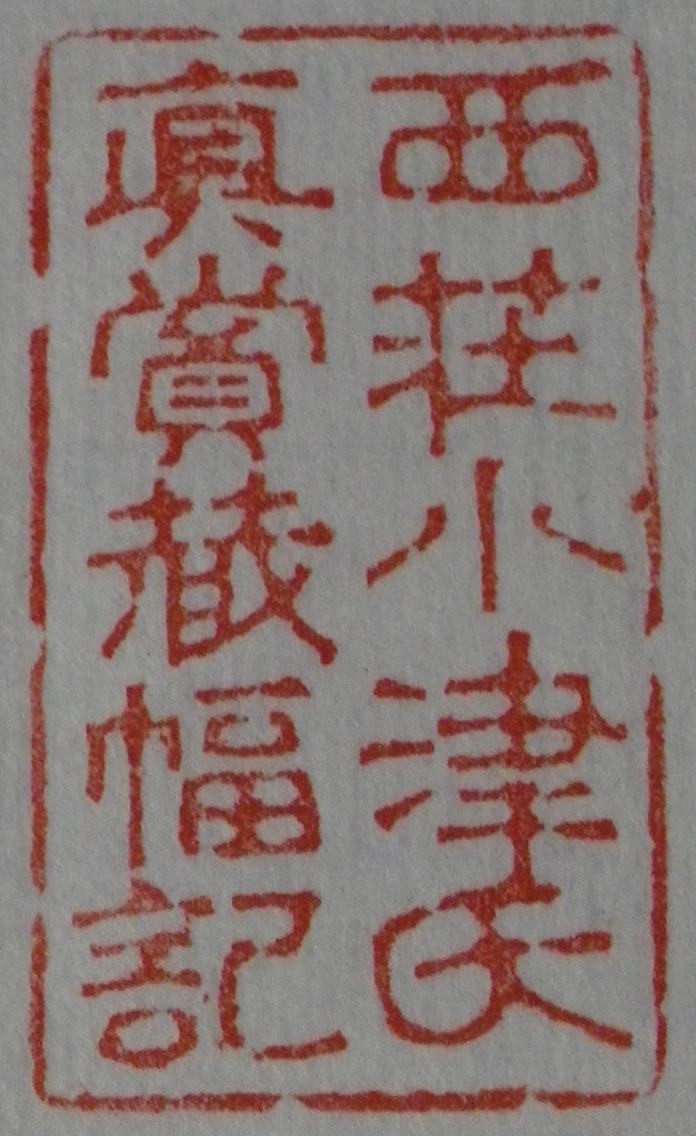 西莊小津氏
眞賞藏幅記